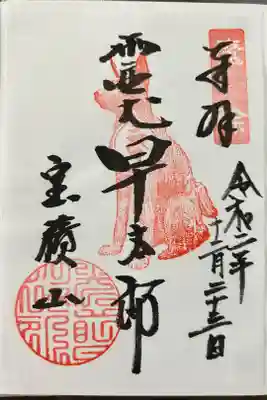 奉拝
令和二年
十二月二十三日
靈犬早太郎
宝積山